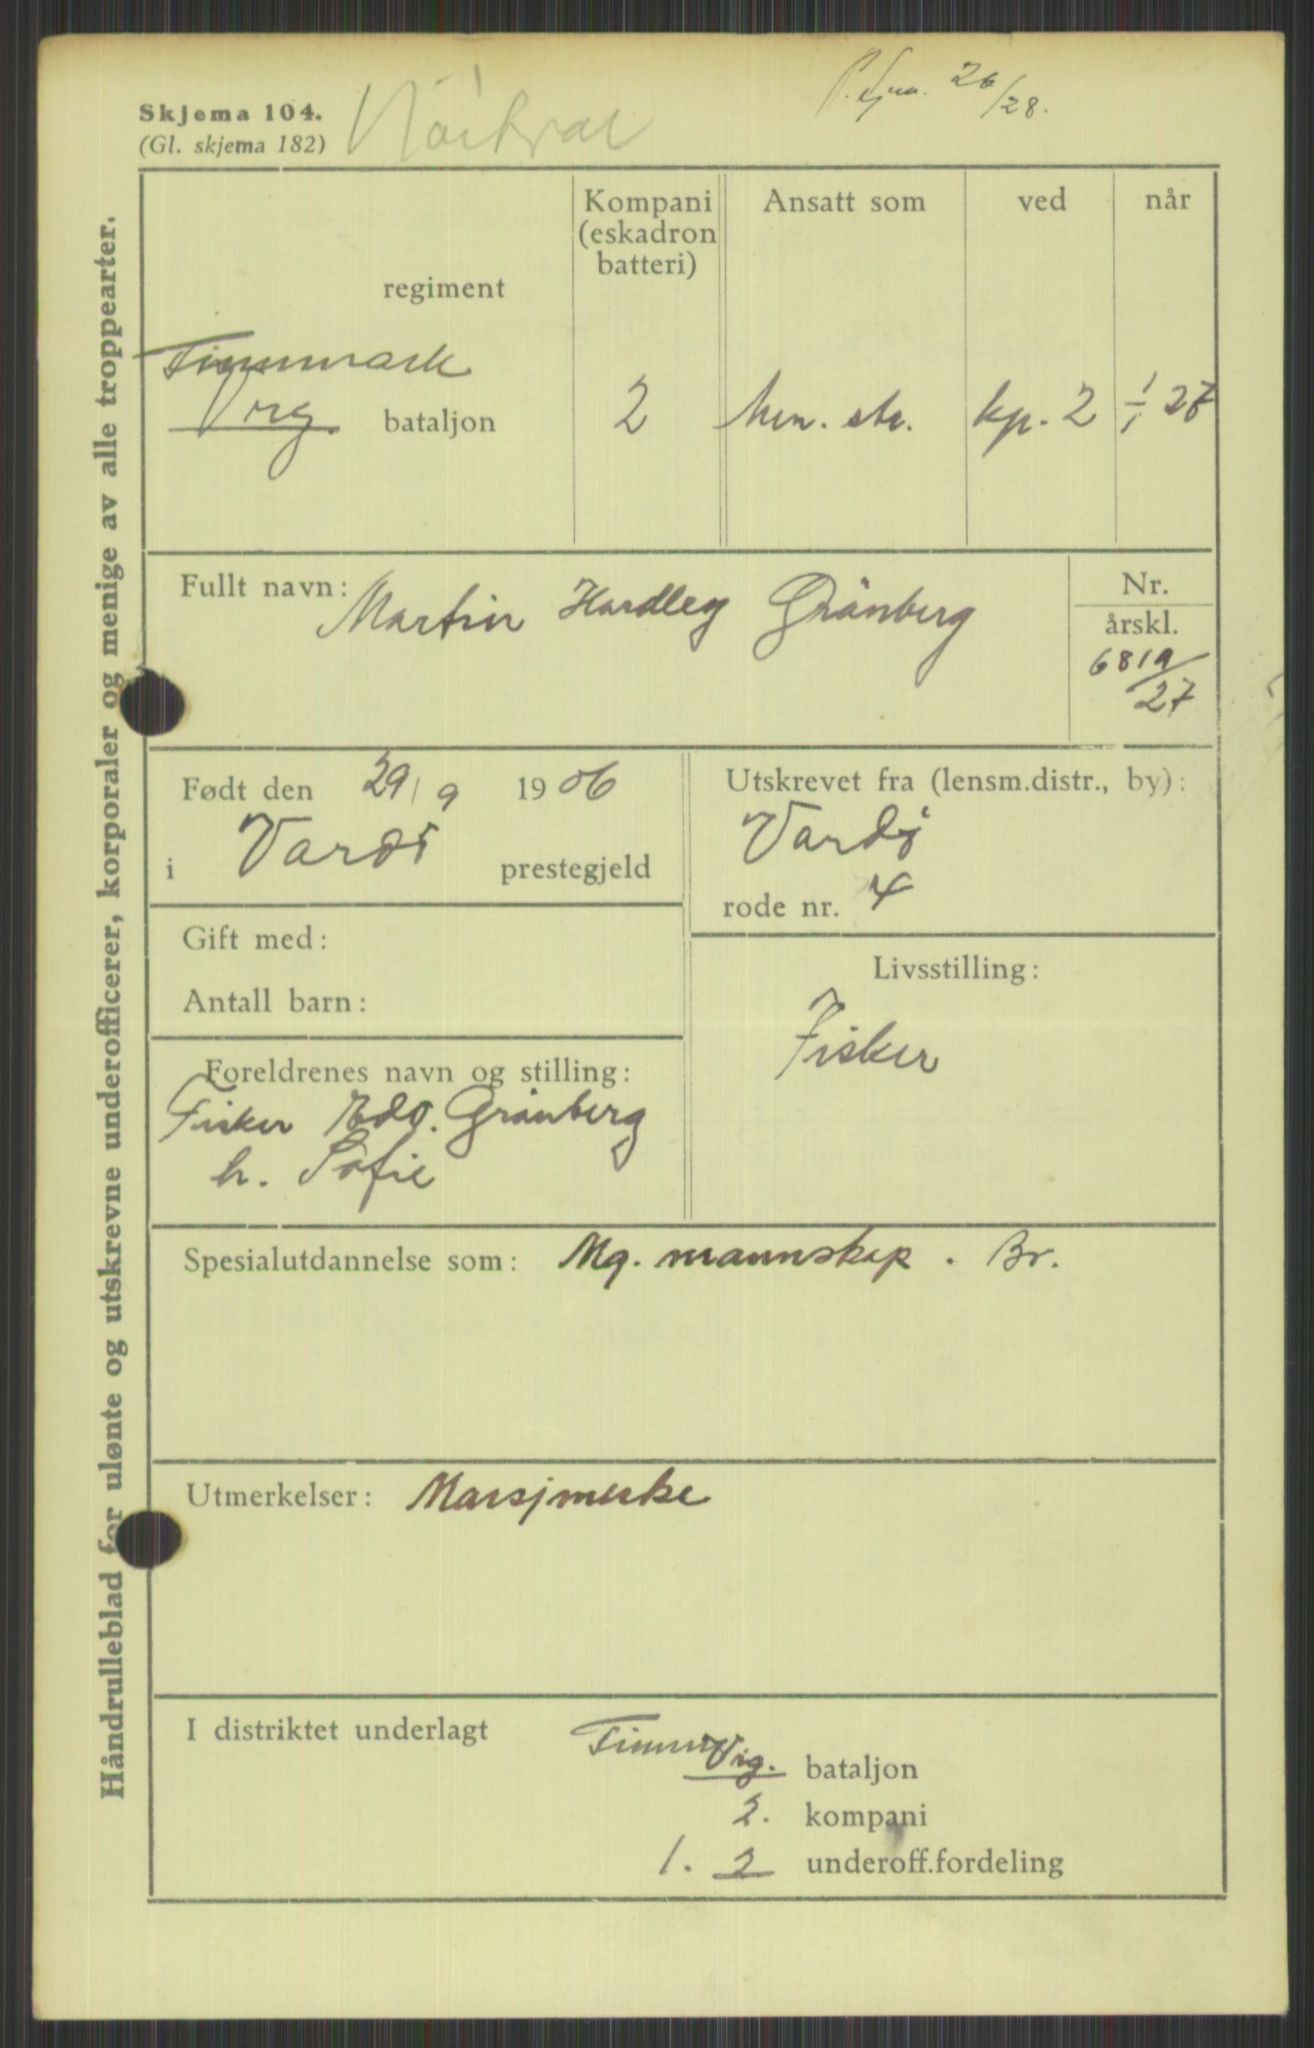 Skjema 104.
(Gl. skjema 182)
26/28.
Håndrulleblad for ulønte og utskrevne underofficerer, korporaler og menige av alle troppearter.
regiment
Kompani
(eskadron
batteri)
Ansatt som
ved
når
Finnmark
Vrg. bataljon
2
Men. str.
kp. 2
1/1 27
Fullt navn: Martin Hardley Grönberg
Nr.
årskl.
6819/27
Født den 29/9 1906
i Vardö prestegjeld
Utskrevet fra (lensm.distr., by):
Vardö
rode nr. 4
Gift med:
Antall barn:
Livsstilling:
Fisker
Foreldrenes navn og stilling:
Fisker Edv. Grönberg
h. Sofie
Spesialutdannelse som: Mg. mannskap. Br.
Utmerkelser: Marsjmerke
I distriktet underlagt
Vrg. bataljon
2. kompani
1. 2 underoff.fordeling